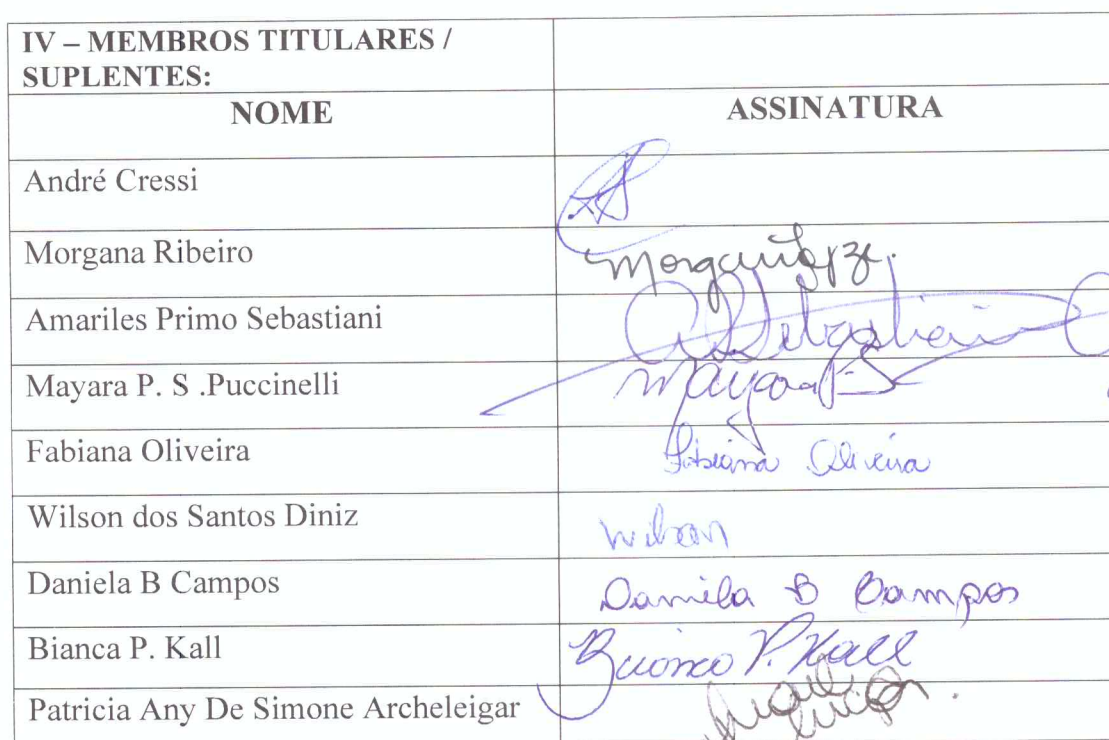 IV – MEMBROS TITULARES /
SUPLENTES:
NOME ASSINATURA
André Cressi
Morgana Ribeiro Morgana
Amariles Primo Sebastiani Sebastiani
Mayara P. S .Puccinelli Mayara P.S
Fabiana Oliveira Fabiana Oliveira
Wilson dos Santos Diniz Wilson
Daniela B Campos Daniela B Campos
Bianca P. Kall Bianca P. Kall
Patricia Any De Simone Archeleigar